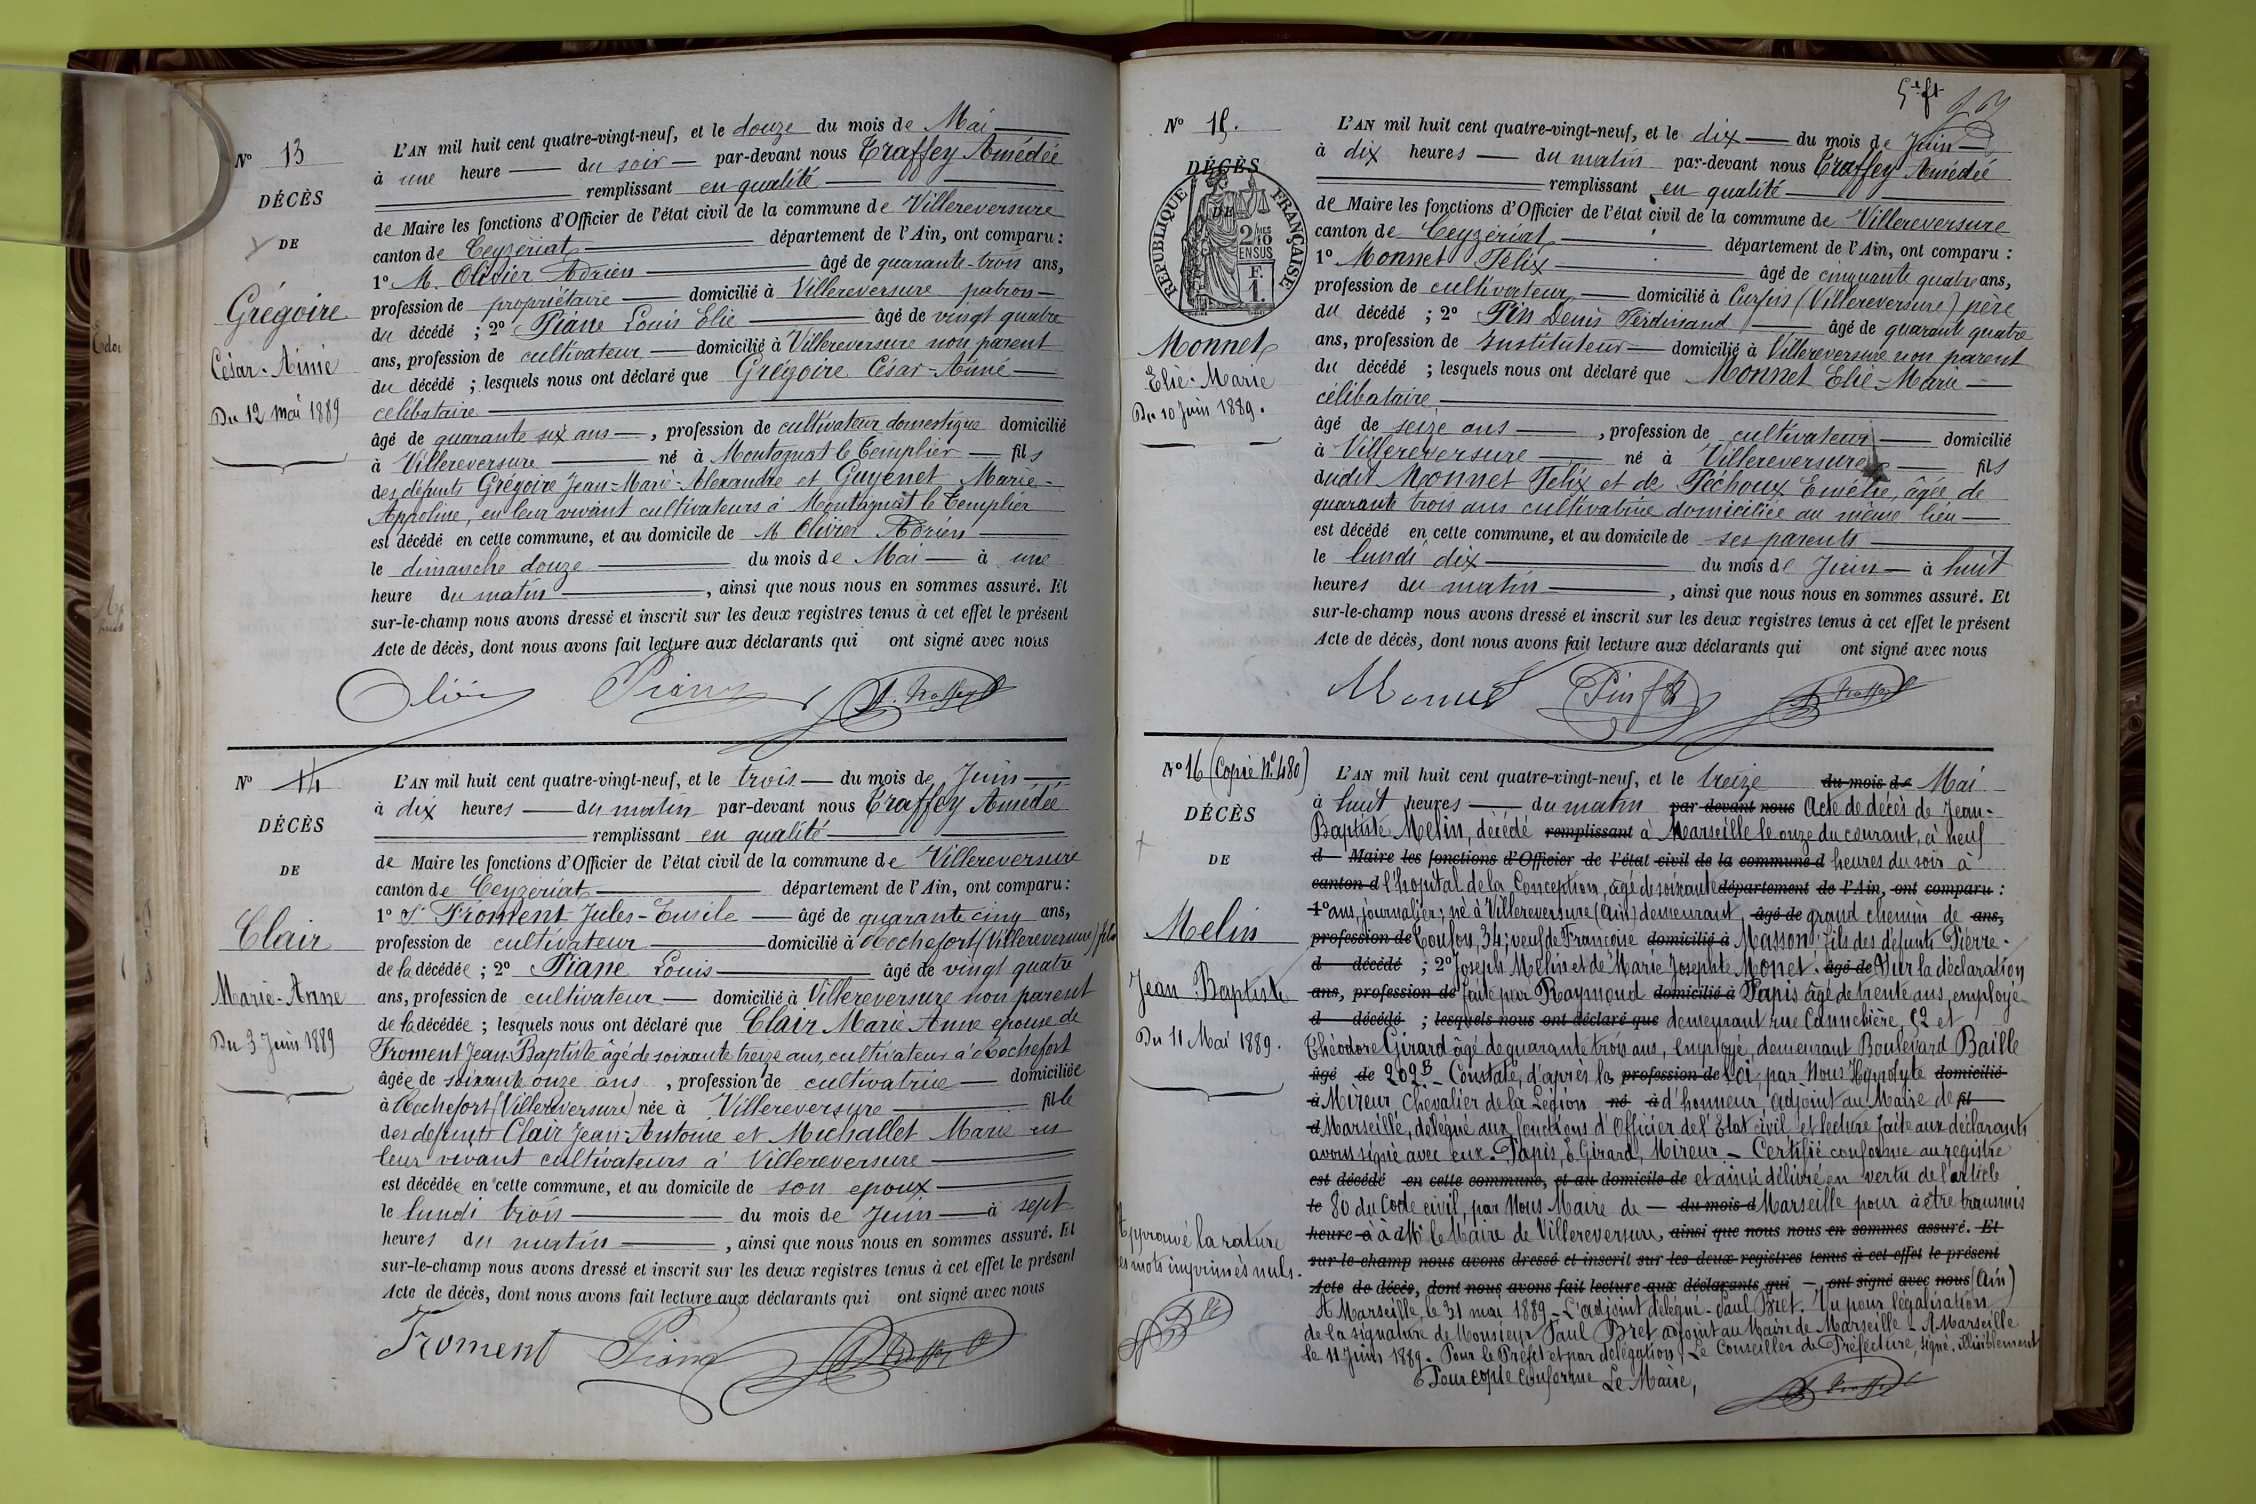 N° 13
DÉCÈS
DE
Grégoire
César-Aimé
Du 12 Mai 1889
L'AN mil huit cent quatre-vingt-neuf, et le douze du mois de Mai
à une heure du soir par-devant nous Traffey Amédée
remplissant en qualité
de Maire les fonctions d'Officier de l'état civil de la commune de Villereversure
canton de Ceyzériat département de l'Ain, ont comparu :
1° M. Olivier Adrien âgé de quarante-trois ans,
profession de propriétaire domicilié à Villereversure patron
du décédé ; 2° Piane Louis Elie âgé de vingt quatre
ans, profession de cultivateur domicilié à Villereversure non parent
du décédé ; lesquels nous ont déclaré que Grégoire César-Aimé
célibataire
âgé de quarante six ans, profession de cultivateur domestique domicilié
à Villereversure né à Montagnat le Templier fils
des défunts Grégoire Jean-Marie-Alexandre et Guyenet Marie-
Appoline, en leur vivant cultivateurs à Montagnat le Templier
est décédé en cette commune, et au domicile de M Olivier Adrien
le dimanche douze du mois de Mai à une
heure du matin, ainsi que nous nous en sommes assuré. Et
sur-le-champ nous avons dressé et inscrit sur les deux registres tenus à cet effet le présent
Acte de décès, dont nous avons fait lecture aux déclarants qui ont signé avec nous
Olivier Piane A. Traffey
N° 14
DÉCÈS
DE
Clair
Marie-Anne
Du 3 Juin 1889
L'AN mil huit cent quatre-vingt-neuf, et le trois du mois de Juin
à dix heures du matin par-devant nous Traffey Amédée
remplissant en qualité
de Maire les fonctions d'Officier de l'état civil de la commune de Villereversure
canton de Ceyzériat département de l'Ain, ont comparu :
1° Sr Froment Jules-Eusèbe âgé de quarante cinq ans,
profession de cultivateur domicilié à Rochefort (Villereversure) fils
de la décédée ; 2° Piane Louis âgé de vingt quatre
ans, profession de cultivateur domicilié à Villereversure non parent
de la décédée ; lesquels nous ont déclaré que Clair Marie Anne épouse de
Froment Jean-Baptiste âgé de soixante treize ans, cultivateur à Rochefort
âgée de soixante onze ans, profession de cultivatrice domiciliée
à Rochefort (Villereversure) née à Villereversure fille
des défunts Clair Jean-Antoine et Michallet Marie en
leur vivant cultivateurs à Villereversure
est décédée en cette commune, et au domicile de son époux
le lundi trois du mois de Juin à sept
heures du matin, ainsi que nous nous en sommes assuré. Et
sur-le-champ nous avons dressé et inscrit sur les deux registres tenus à cet effet le présent
Acte de décès, dont nous avons fait lecture aux déclarants qui ont signé avec nous
Froment Piane A. Traffey
N° 15.
DÉCÈS
DE
RÉPUBLIQUE FRANÇAISE
2/10 MES
EN SUS
F.
1.
Monnet
Elie-Marie
Du 10 Juin 1889.
L'AN mil huit cent quatre-vingt-neuf, et le dix du mois de Juin
à dix heures du matin par-devant nous Traffey Amédée
remplissant en qualité
de Maire les fonctions d'Officier de l'état civil de la commune de Villereversure
canton de Ceyzériat département de l'Ain, ont comparu :
1° Monnet Félix âgé de cinquante quatre ans,
profession de cultivateur domicilié à Curfin (Villereversure) père
du décédé ; 2° Pin Denis Ferdinand âgé de quarante quatre
ans, profession de Instituteur domicilié à Villereversure non parent
du décédé ; lesquels nous ont déclaré que Monnet Elie-Marie
célibataire
âgé de seize ans, profession de cultivateur domicilié
à Villereversure né à Villereversure fils
dudit Monnet Félix et de Péchoux Emélie, âgée de
quarante trois ans cultivatrice domiciliée au même lieu
est décédé en cette commune, et au domicile de ses parents
le lundi dix du mois de Juin à huit
heures du matin, ainsi que nous nous en sommes assuré. Et
sur-le-champ nous avons dressé et inscrit sur les deux registres tenus à cet effet le présent
Acte de décès, dont nous avons fait lecture aux déclarants qui ont signé avec nous
Monnet Pin A. Traffey
N° 16 (Copie N° 480)
DÉCÈS
DE
Melin
Jean Baptiste
Du 11 Mai 1889.
Approuvé la rature
des mots imprimés nuls.
L'AN mil huit cent quatre-vingt-neuf, et le treize du mois de Mai
à huit heures du matin par-devant nous Acte de décès de Jean-
Baptiste Melin, décédé remplissant à Marseille le onze du courant, à neuf
d Maire les fonctions d'Officier de l'état civil de la commune d heures du soir à
canton d l'hopital de la Conception, âgé de soixante département de l'Ain, ont comparu :
1° ans, journalier, né à Villereversure (Ain) demeurant, âgé de grand chemin de ans,
profession de Toulon, 34; veuf de Françoise domicilié à Masson; fils des défunts Pierre-
d décédé ; 2° Joseph Melin et de Marie Josephte Monet. âgé de Sur la déclaration
ans, profession de faite par Raymond domicilié à Papis âgé de trente ans, employé
d décédé ; lesquels nous ont déclaré que demeurant rue Cannebière, 62 et
Théodore Girard âgé de quarante trois ans, employé, demeurant Boulevard Baille
âgé de 202B - Constaté, d'après la profession de loi, par Nous Hyppolyte domicilié
à Mireur Chevalier de la Légion né à d'honneur, adjoint au Maire de fil
d Marseille, délégué aux fonctions d'Officier de l'Etat civil et lecture faite aux déclarants
avons signé avec eux. Papis, E. Girard, Mireur. - Certifié conforme au registre
est décédé en cette commune, et au domicile de et ainsi délivré en vertu de l'article
le 80 du Code civil, par Nous Maire de du mois d Marseille pour à être transmis
heure à à Mr le Maire de Villereversure, ainsi que nous nous en sommes assuré. Et
sur-le-champ nous avons dressé et inscrit sur les deux registres tenus à cet effet le présent
Acte de décès, dont nous avons fait lecture aux déclarants qui ont signé avec nous (Ain)
A Marseille, le 31 mai 1889 - L'adjoint délégué - Paul Bret. Vu pour légalisation
de la signature de Monsieur Paul Bret adjoint au Maire de Marseille - A Marseille
le 11 Juin 1889. Pour le Préfet et par délégation, Le Conseiller de Préfecture, signé, illisiblement
Pour copie conforme Le Maire,
A. Traffey